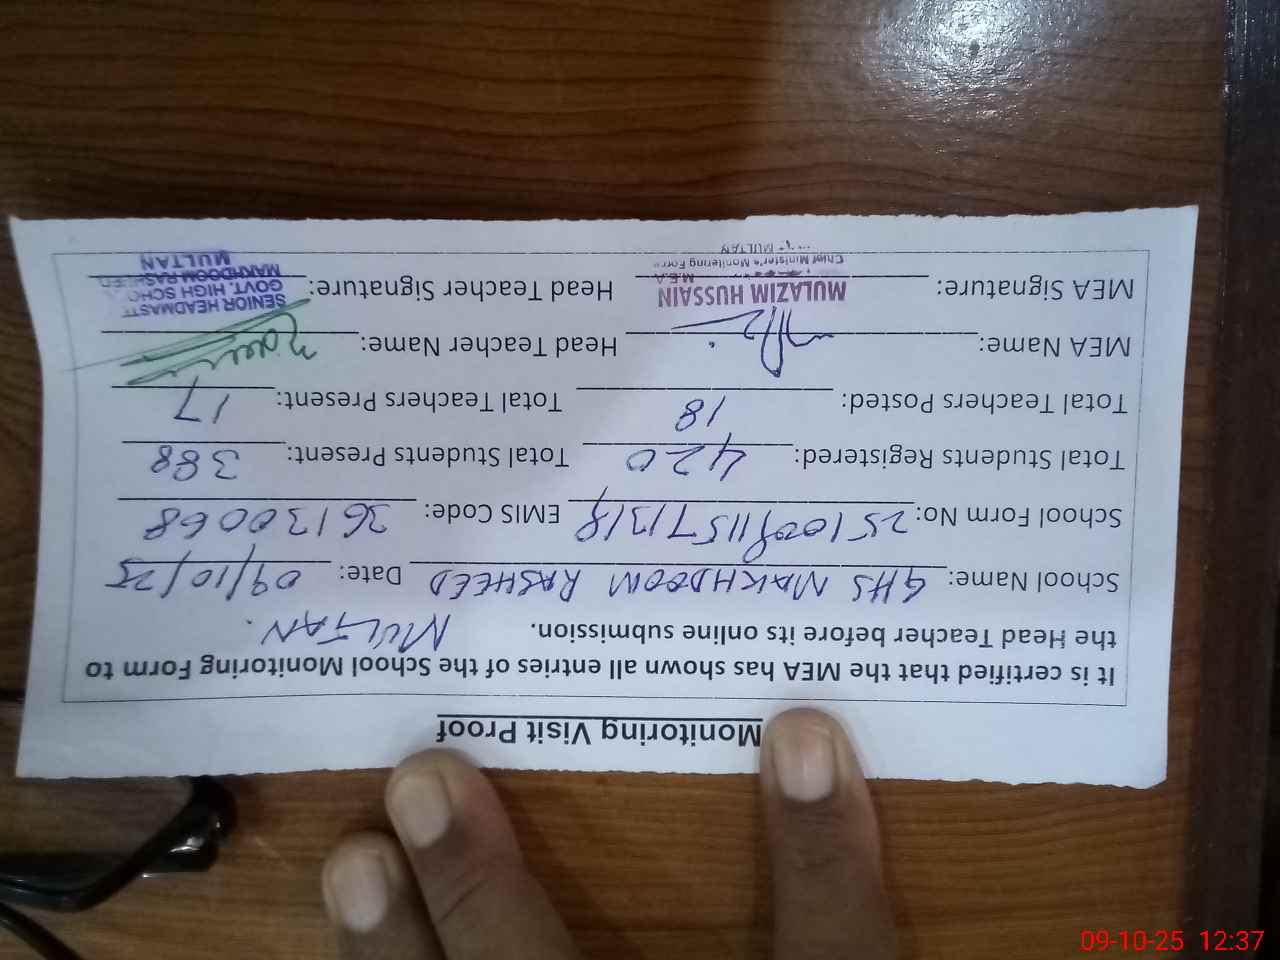 Monitoring Visit Proof
It is certified that the MEA has shown all entries of the School Monitoring Form to
the Head Teacher before its online submission. MULTAN.
School Name: GHS MAKHDOOM RASHEED Date: 09/10/25
School Form No: EMIS Code: 36130068
Total Students Registered: 420 Total Students Present: 388
Total Teachers Posted: 18 Total Teachers Present: 17
MEA Name: Head Teacher Name:
MEA Signature: Head Teacher Signature:
MULAZIM HUSSAIN
M.E.A
Chief Minister's Monitoring Force
MULTAN
SENIOR HEADMAST
GOVT. HIGH SCHO
MAKHDOOM RASHEED
MULTAN
09-10-25 12:37